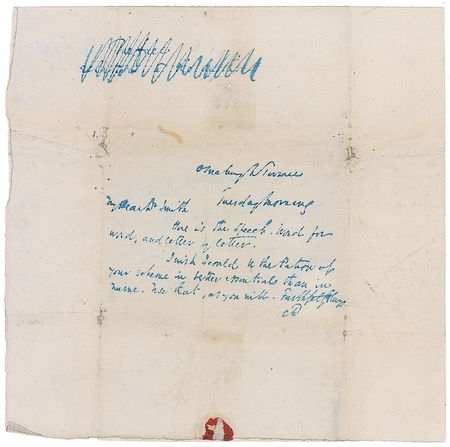 Osnaburgh Terrace
Tuesday Morning
My Dear Dr Smith
Here is the Speech. Word for
word, and letter by letter.
I wish I could be the Patron of
your scheme in better essentials than in
name. Use that, as you will. Faithfully
CD